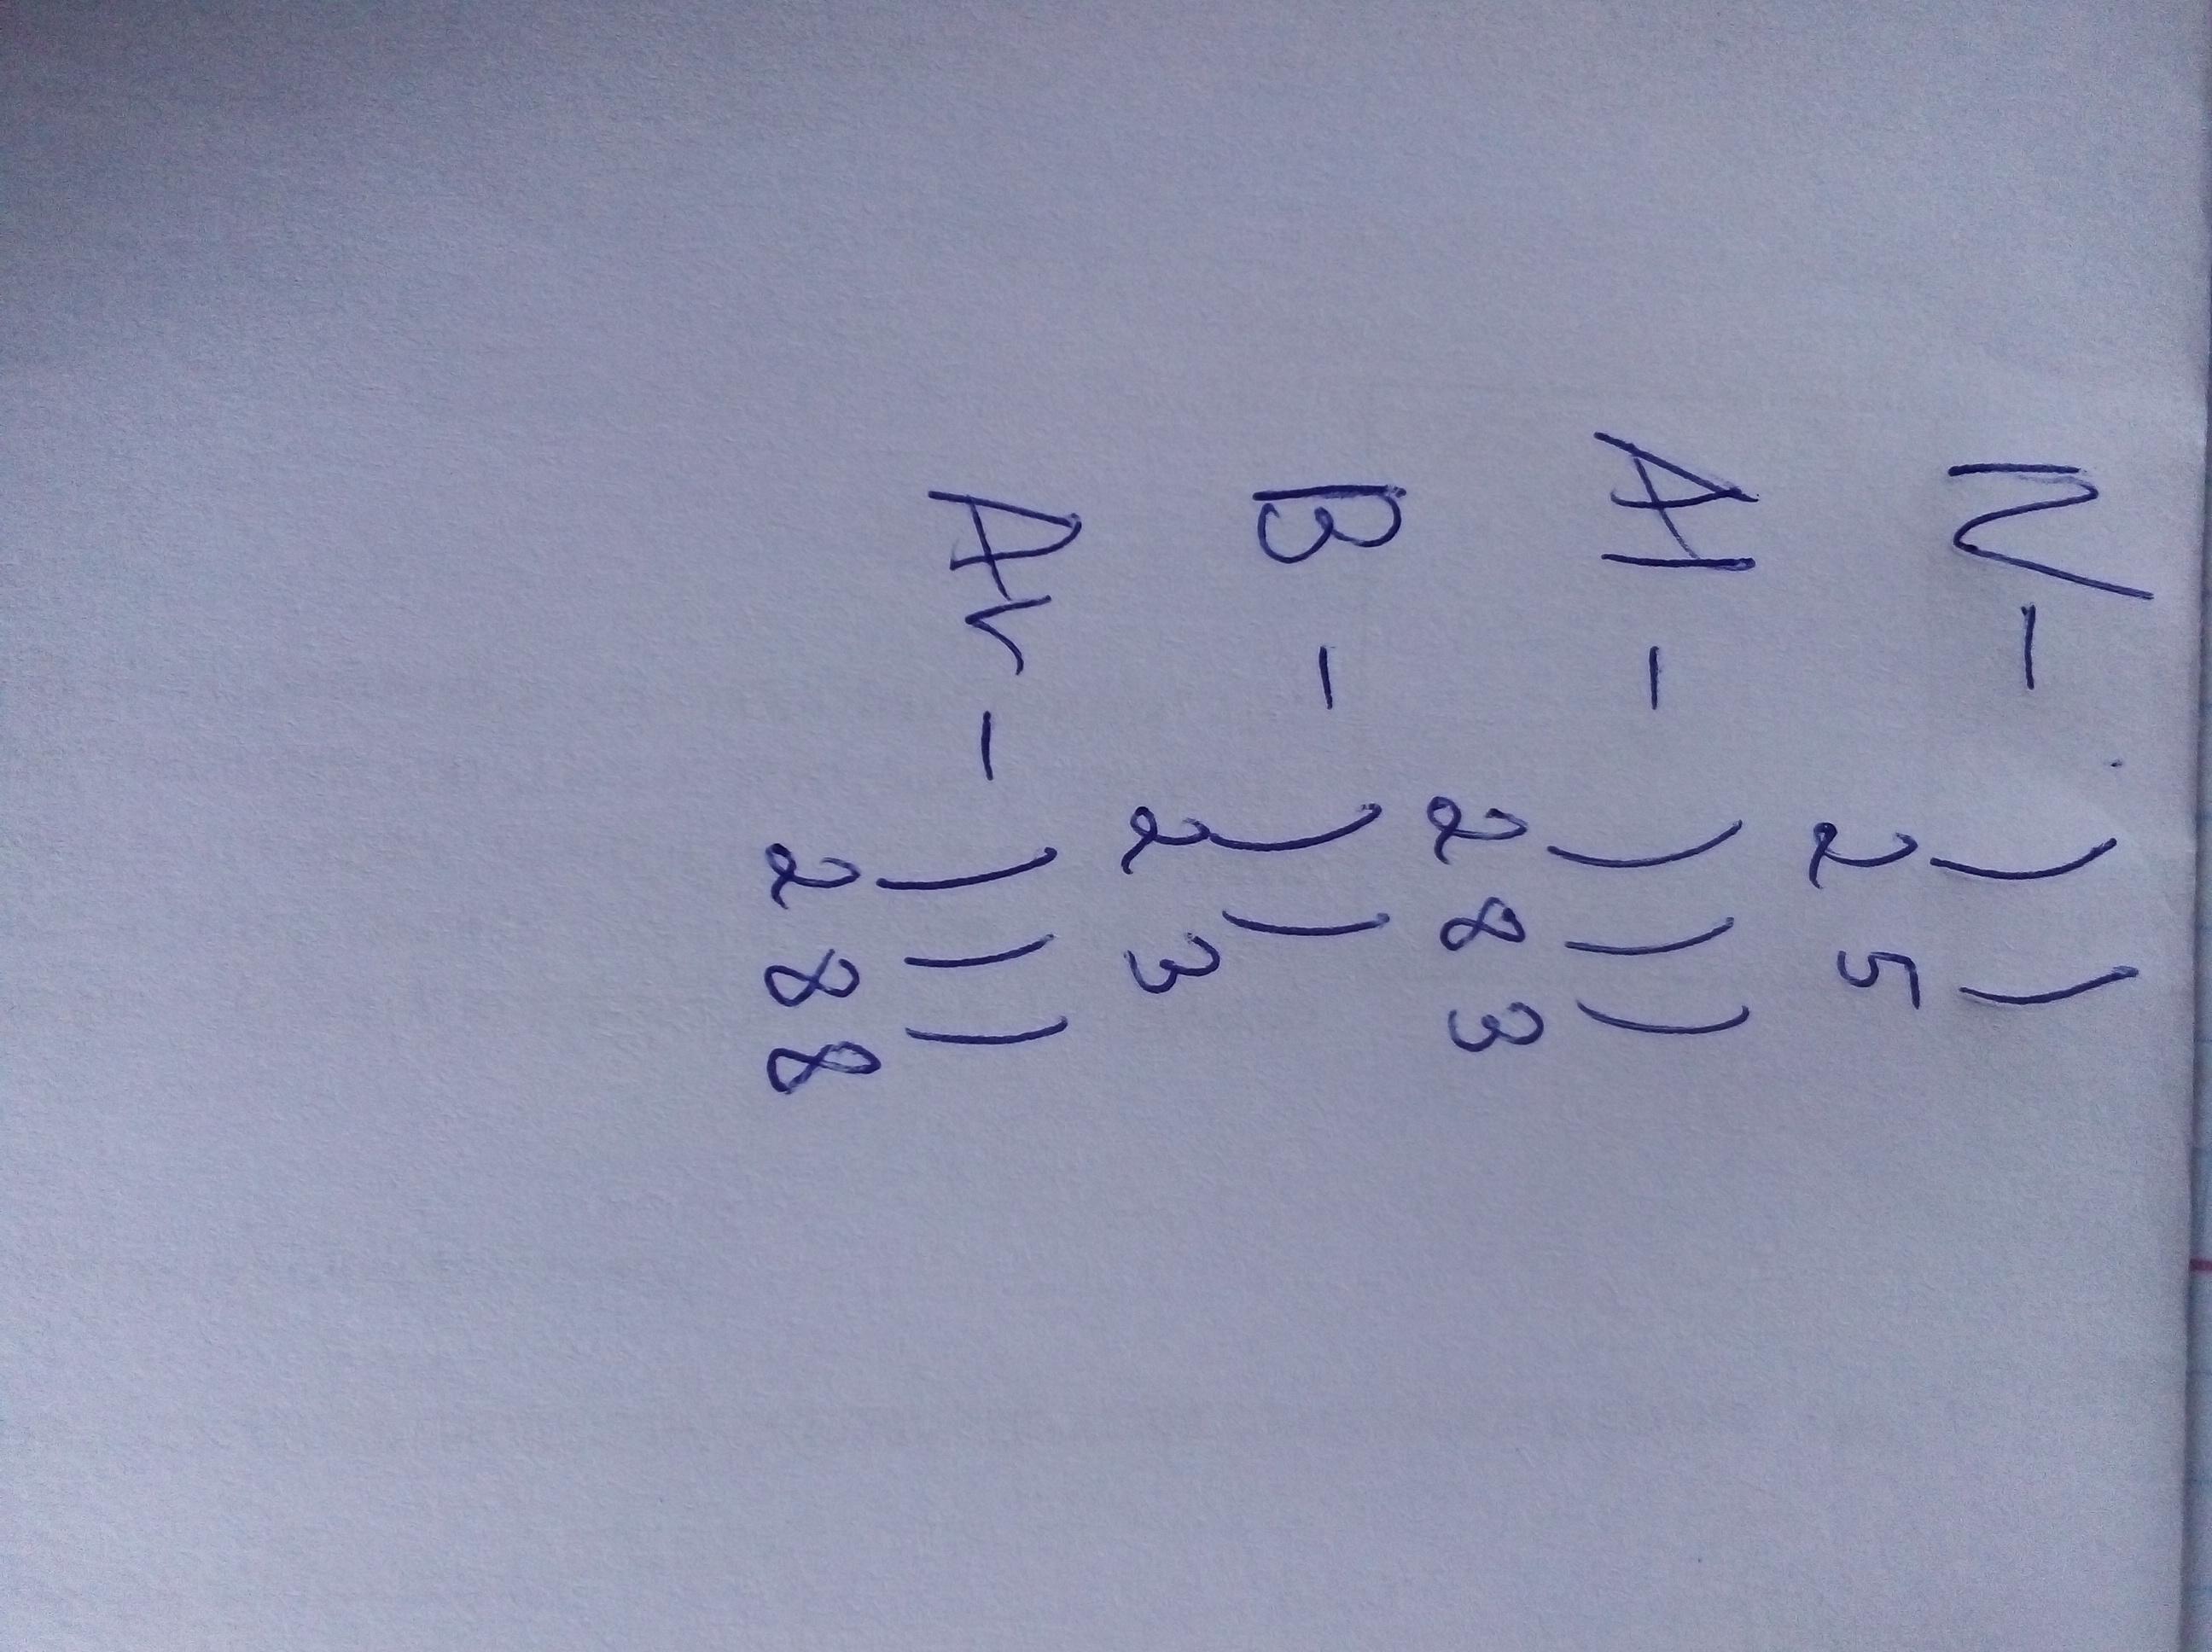 N - ) )
2 5
Al - ) ) )
2 8 3
B - ) )
2 3
Ar - ) ) )
2 8 8